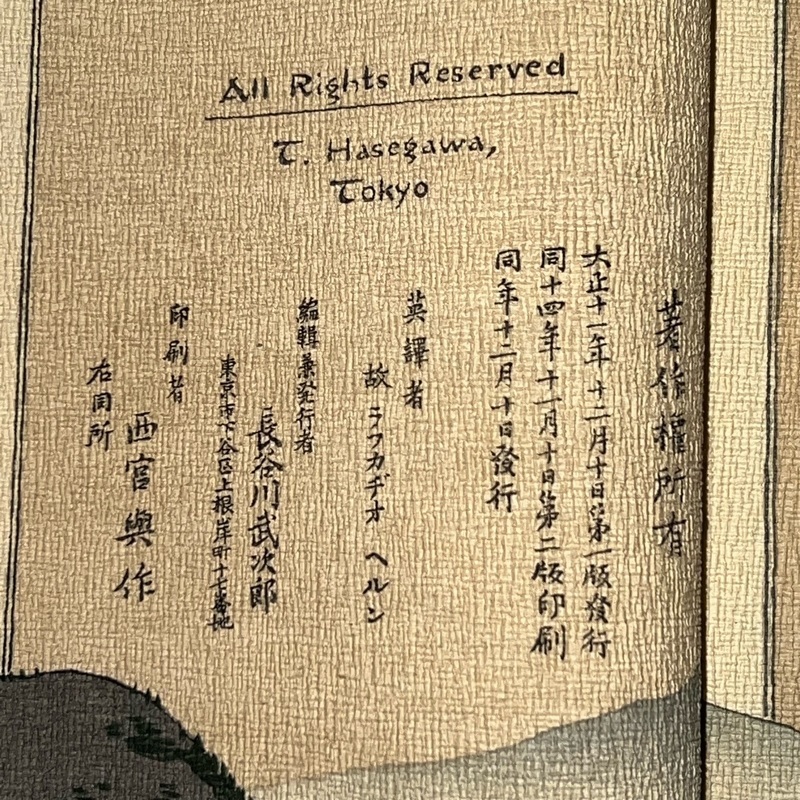 All Rights Reserved
T. Hasegawa,
Tokyo
著作權所有
大正十一年十二月十日第一版發行
同十四年十一月十日第二版印刷
同年十二月十日發行
英譯者
故 ラフカヂオ ヘルン
編輯兼発行者
長谷川武次郎
東京市下谷区上根岸町十七番地
印刷者
西宮與作
右同所